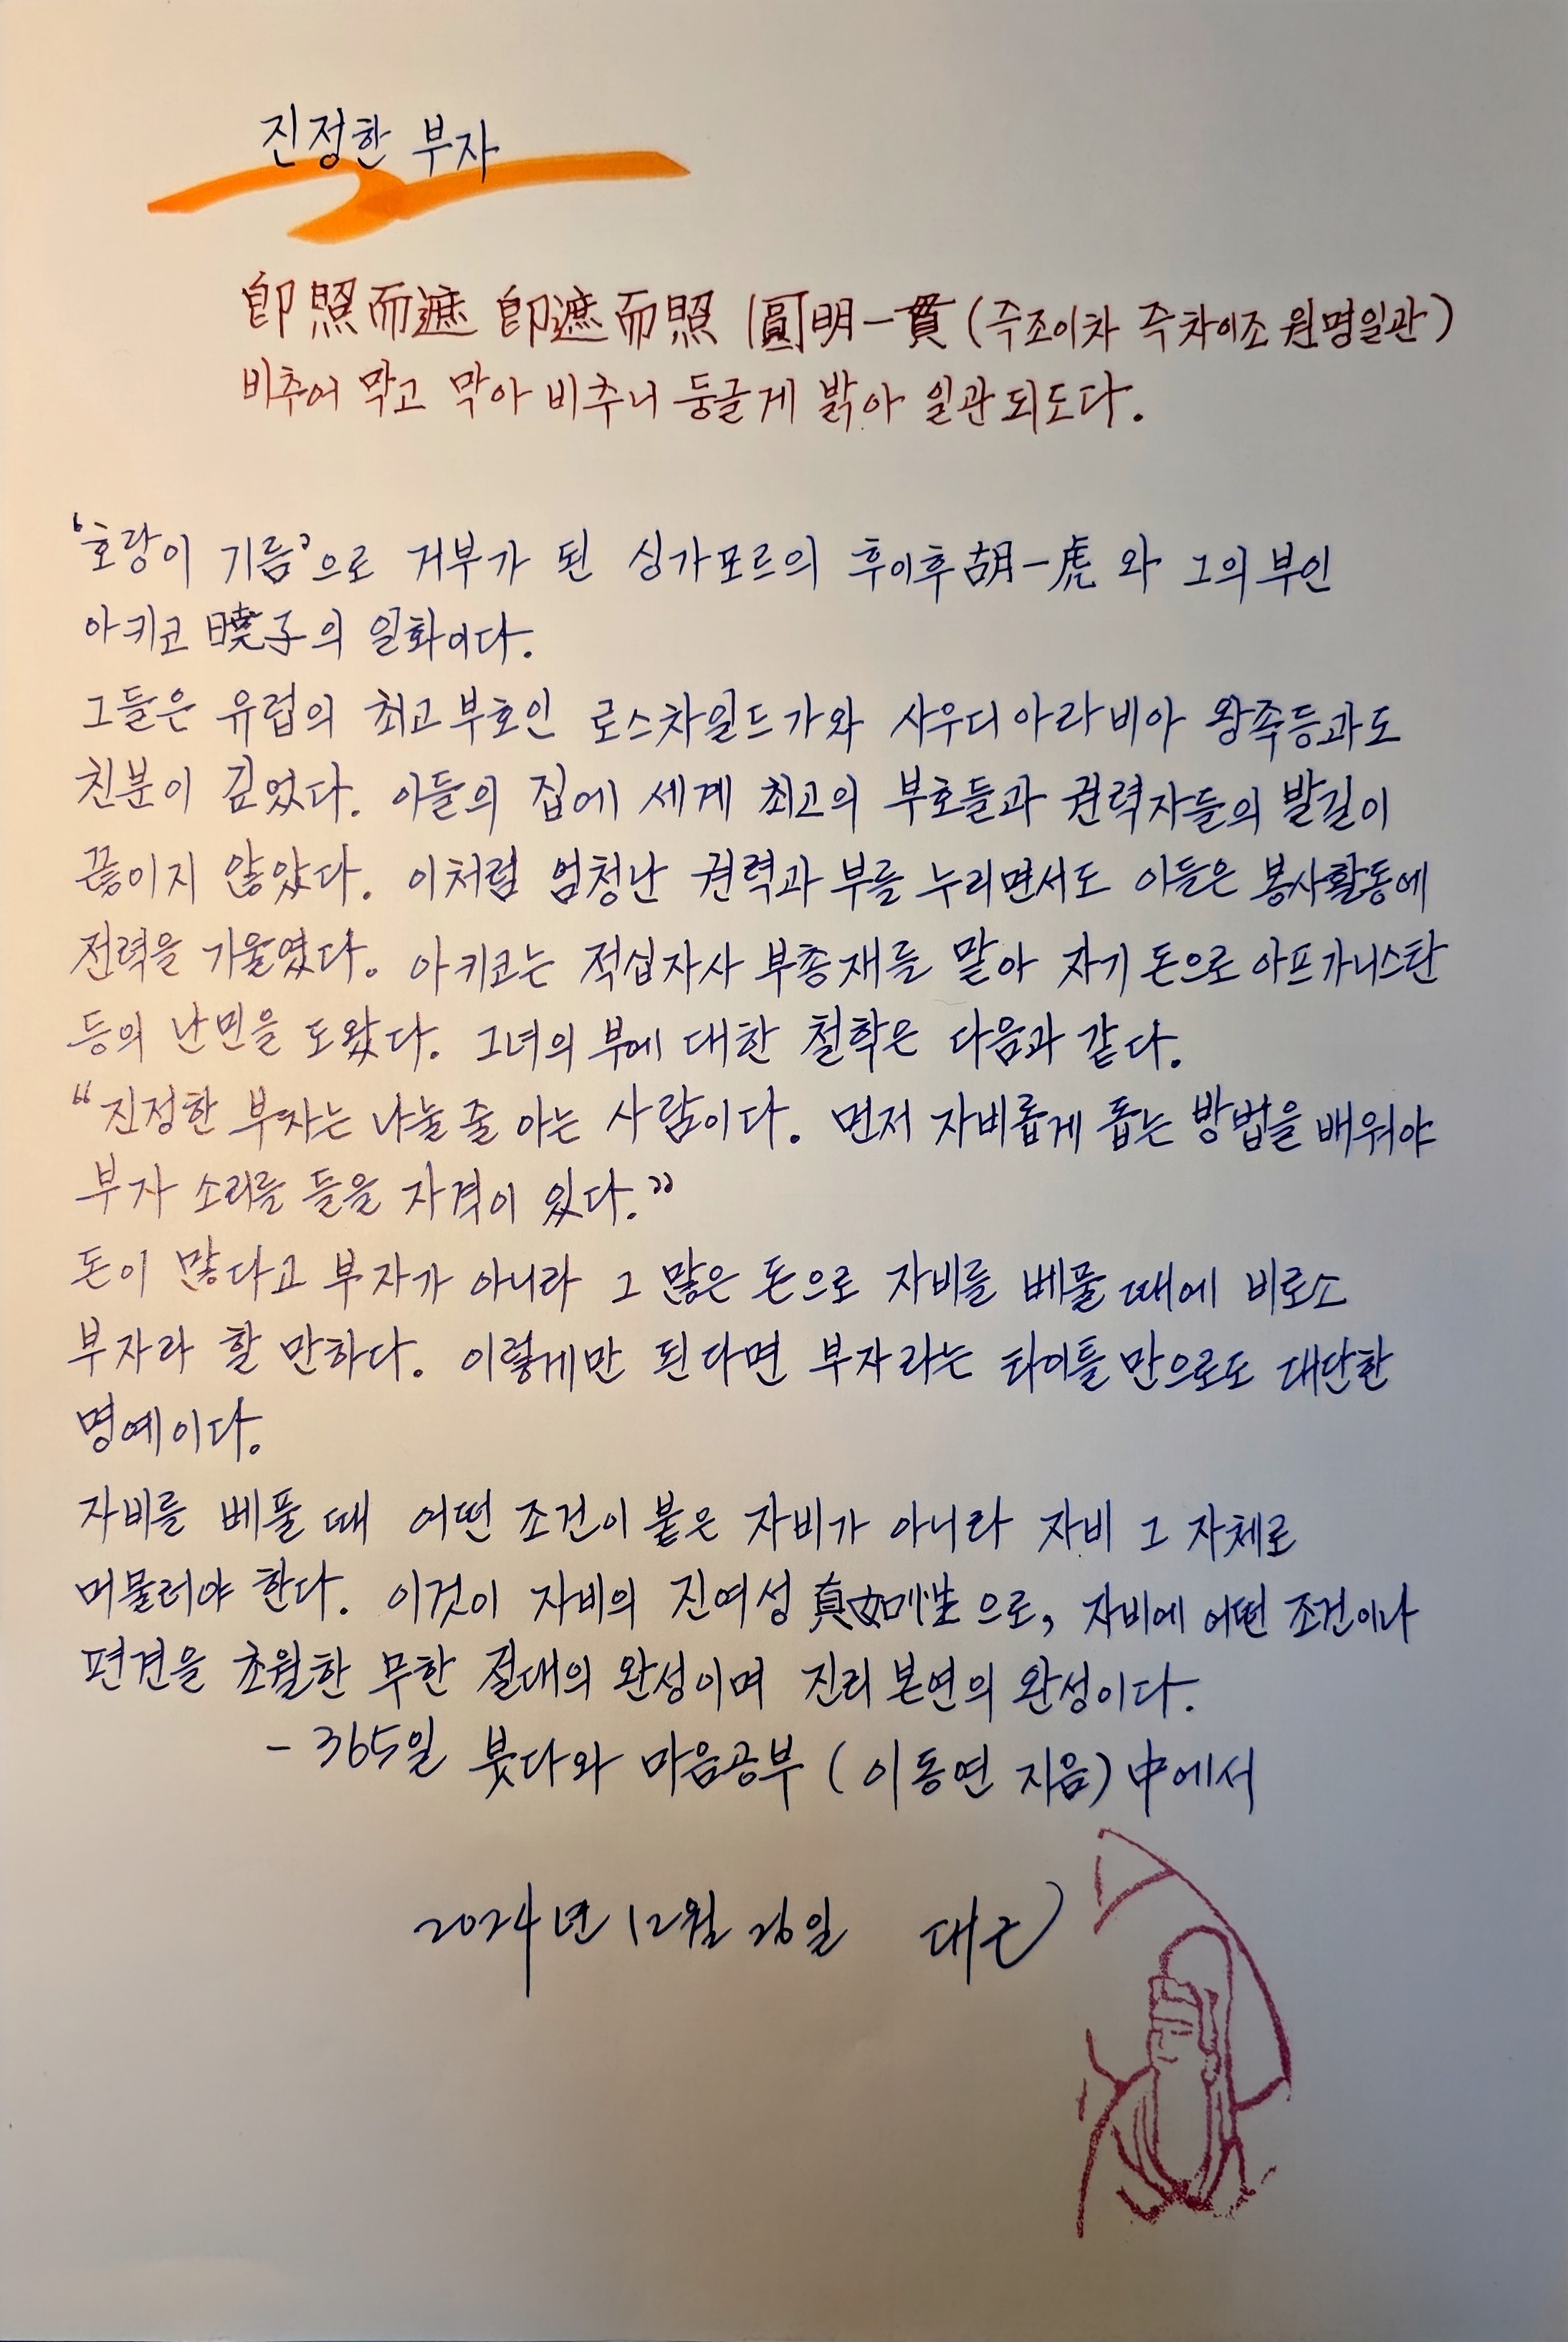 진정한 부자
卽照而遮 卽遮而照 圓明一貫 (즉조이차 즉차이조 원명일관)
비추어 막고 막아 비추니 둥글게 밝아 일관되도다.
'호랑이 기름'으로 거부가 된 싱가포르의 후이후 胡一虎 와 그의 부인
아키코 曉子의 일화이다.
그들은 유럽의 최고 부호인 로스차일드가와 사우디아라비아 왕족등과도
친분이 깊었다. 이들의 집에 세계 최고의 부호들과 권력자들의 발길이
끊이지 않았다. 이처럼 엄청난 권력과 부를 누리면서도 이들은 봉사활동에
전력을 기울였다. 아키코는 적십자사 부총재를 맡아 자기 돈으로 아프가니스탄
등의 난민을 도왔다. 그녀의 부에 대한 철학은 다음과 같다.
“진정한 부자는 나눌 줄 아는 사람이다. 먼저 자비롭게 돕는 방법을 배워야
부자 소리를 들을 자격이 있다.”
돈이 많다고 부자가 아니라 그 많은 돈으로 자비를 베풀 때에 비로소
부자라 할 만하다. 이렇게만 된다면 부자라는 타이틀 만으로도 대단한
명예이다.
자비를 베풀 때 어떤 조건이 붙은 자비가 아니라 자비 그 자체로
머물러야 한다. 이것이 자비의 진여성 眞如性 으로, 자비에 어떤 조건이나
편견을 초월한 무한 절대의 완성이며 진리 본연의 완성이다.
- 365일 붓다와 마음공부 (이동연 지음) 中에서
2024년 12월 26일 대근